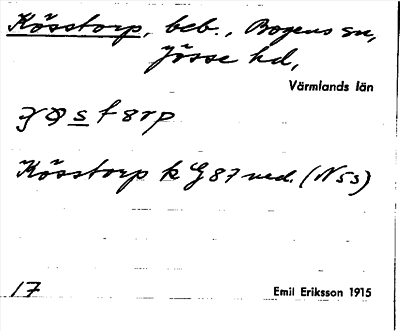 Kösstorp, beb., Bogens sn,
Jösse hd,
Värmlands län
Kösstorp k G 87 ned. (N 53)
17
Emil Eriksson 1915